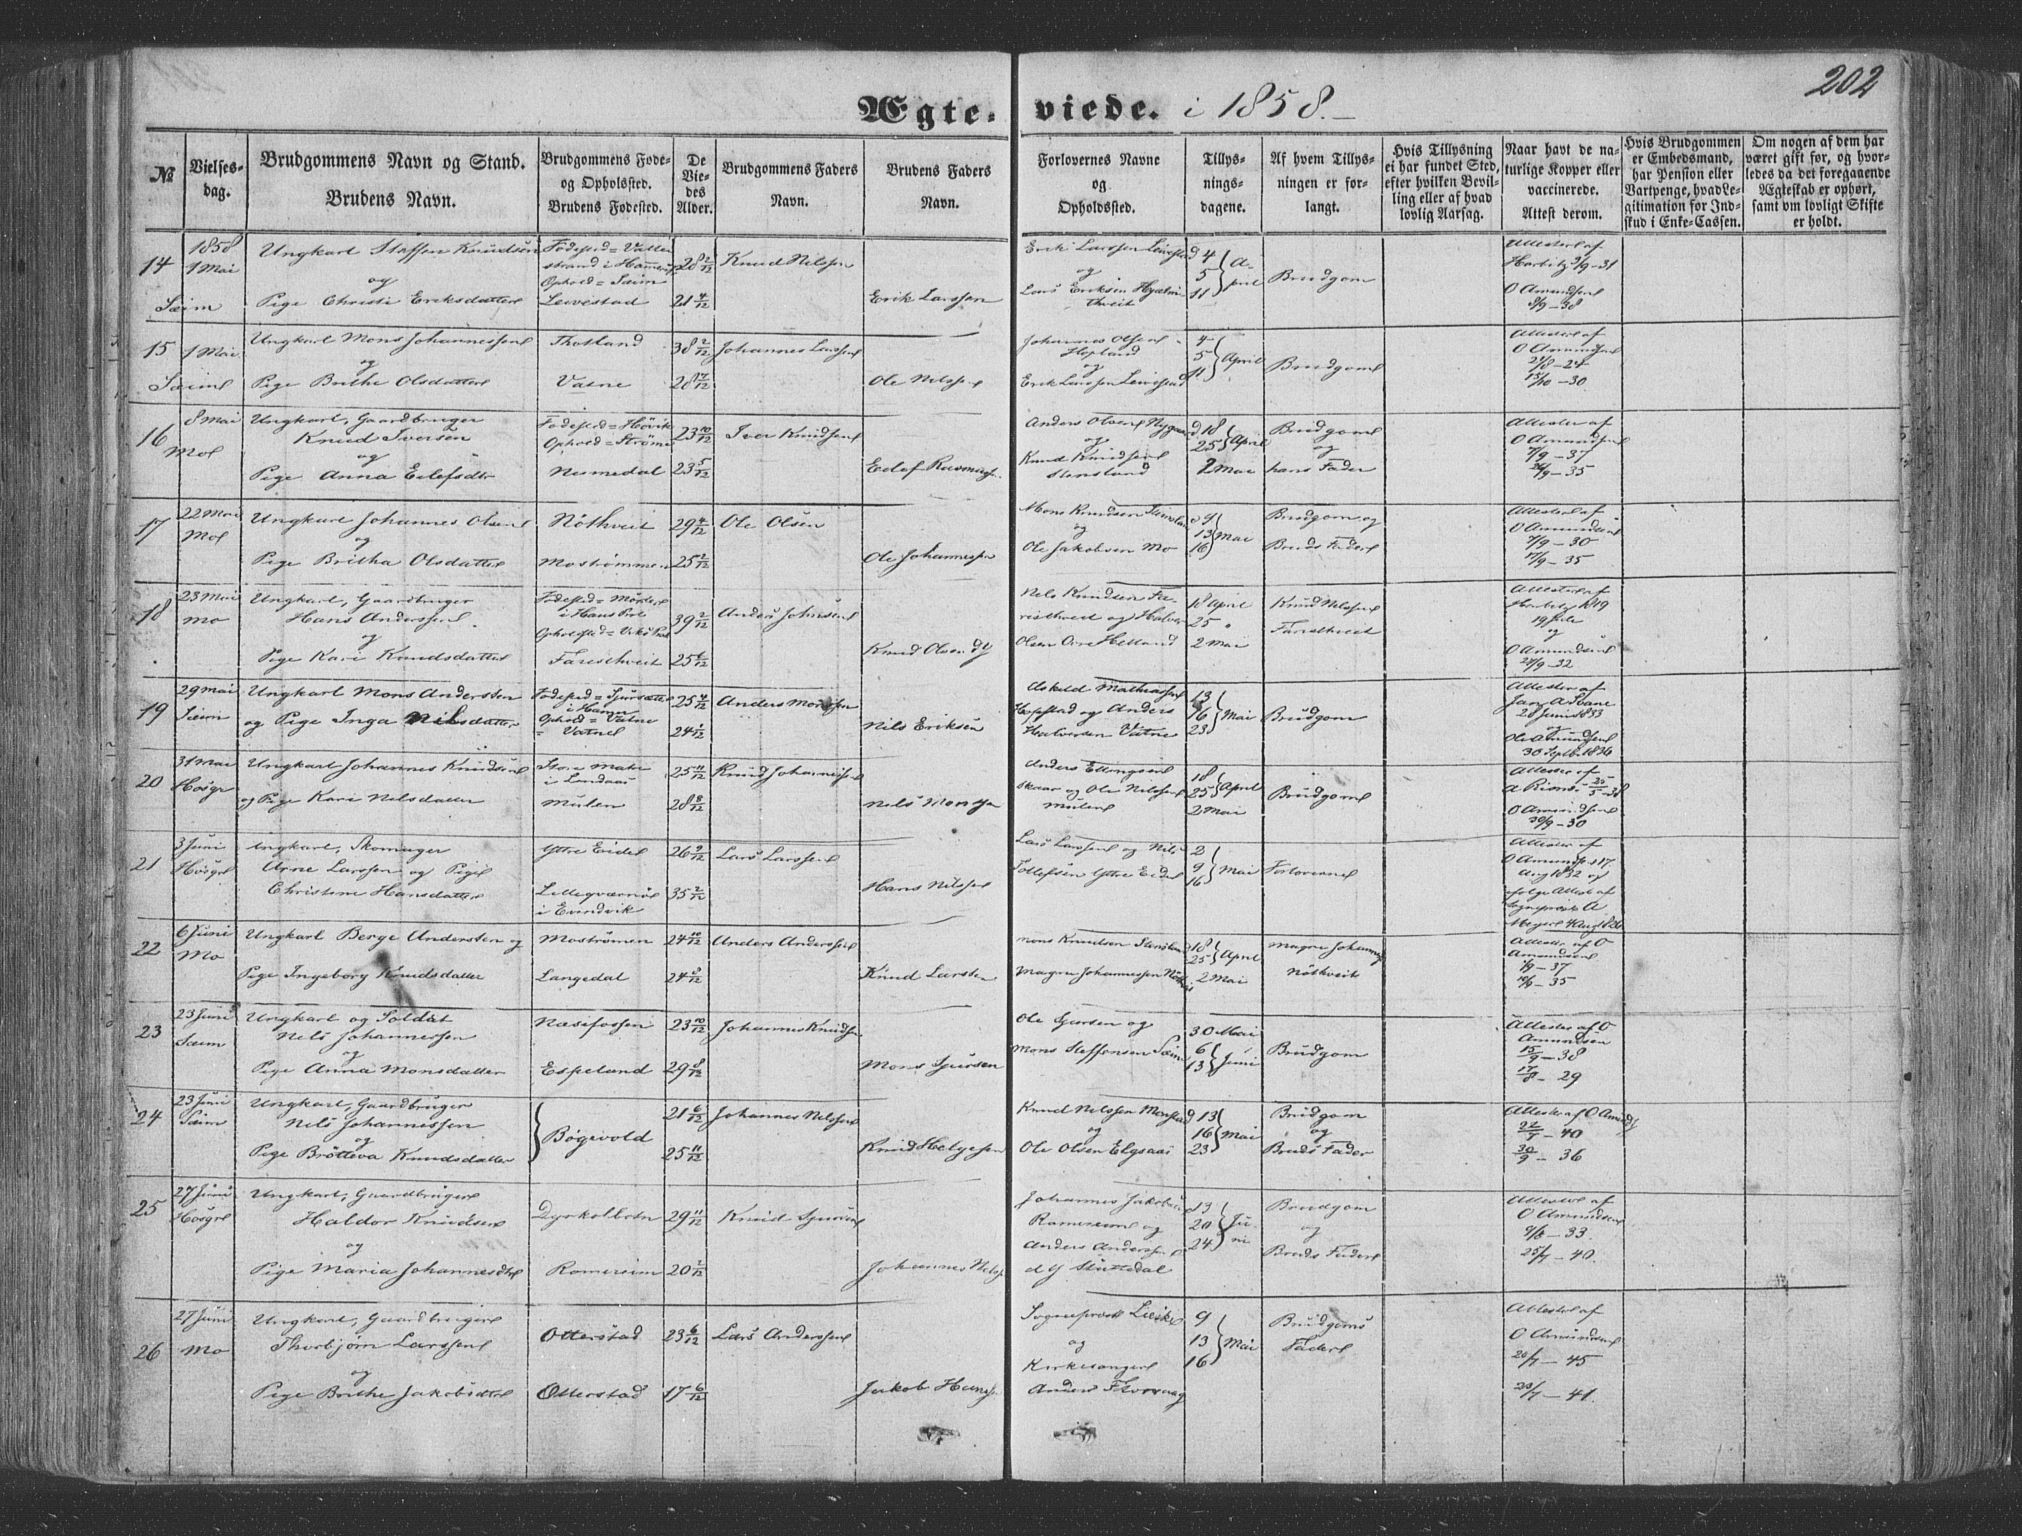 202
Ægte= viede. i 1858.
№
Vielses=
dag.
Brudgommens Navn og Stand.
Brudens Navn.
Brudgommens Føde=
og Opholdssted.
Brudens Fødested.
De
Vie=
des
Alder.
Brudgommens Faders
Navn.
Brudens Faders
Navn.
Forlovernes Navne
og
Opholdssted.
Tillys=
nings=
dagene.
Af hvem Tillys=
ningen er for=
langt.
Hvis Tillysning
ei har fundet Sted,
efter hvilken Bevil=
ling eller af hvad
lovlig Aarsag.
Naar havt de na=
turlige Kopper eller
vaccinerede.
Attest derom.
Hvis Brudgommen
er Embedsmand,
har Pension eller
Vartpenge, hvad Le=
gitimation for Ind=
skud i Enke=Cassen.
Om nogen af dem har
været gift før, og hvor=
ledes da det foregaaende
Ægteskab er ophørt,
samt om lovligt Skifte
er holdt.
14
1858
1 Mai
Sæim
Ungkarl Steffen Knudsen
og
Pige Christi Eriksdatter
Fødested =
Ophold = Sæim
Levestad
28 2/12
21 4/12
Knud Nilssen
Erik Larssen
Erik Larssen Leivestad
og
Lars Eriksen
4
5
11
April
Brudgom
Attester af
Harbitz 2/9-31
O Amundsen
8/9-38
15
1 Mai
Sæim
Ungkarl Mons Johannessen
og
Pige Brithe Olsdatter
Thotland
Vatne
38 2/12
28
Johannes Larssen
Ole Nilssen
Johannes Olsen
Hopland
og
Erik Larssen Leivestad
4
5
11
April
Brudgom
Attester af
O Amundsen
2/8-24
15/10-30
16
8 Mai
Mo
Ungkarl, Gaardbruger
Knud Iversen
og
Pige Anna Eilefsdtr
Fødested = Høvik
Ophold = Strøm
Nesmedal
23 10/12
23 5/12
Iver Knudsen
Eilef Rasmuss.
Anders Olsen Nygaar
og
Knud Knudsen
Stensland
18
25
April
2 Mai
Brudgom
og
hans Fader
Attester af
O Amundsen
7/9-37
-35
17
22 Mai
Mo
Ungkarl Johannes Olsen
og
Pige Britha Olsdatter
Nøthveit
Mostrømmen
29 4/12
25 2/12
Ole Olsen
Ole Johannessen
Mons Knudsen
og
Ole Jakobsen Mo
9
13
16
Mai
Brudgom og
Bruds Fader
Attester af
O Amundsen
7/9-30
17/9-35
18
23 Mai
Mo
Ungkarl, Gaardbruger
Hans Anderssen
og
Pige Kari Knudsdatter
Farestveit
39 2/12
25 6/12
Anders Johnsen
Knud Olsen
Nils Knudsen Fa=
restveit og Halvor
Olsen Helland
18 April
25
2 Mai
Knud Nilssen
Farestveit
Attester af
Harbitz 1819
og
O Amundsen
-32
19
29 Mai
Sæim
Ungkarl Mons Andersen
og Pige Inga Nilsdatter
i Hamre
Ophold = Vatne
= Vatne
25 4/12
24 1/12
Anders Monssen
Nils Eriksen
Askild Mathiassen
Hopstad og Anders
Halvorsen Vatne
13
16
23
Mai
Brudgom
Attester af
28 Juni 1833
og
Ole Amundsen
30 Septbr 1836
20
31 Mai
Hosgr
Ungkarl Johannes Knudsen
og Pige Kari Nilsdatter
Store Mate
i Lindaas
Mulen
25 11/12
28 8/12
Knud Johannessen
Nils Monsen
Anders Ellingsen
og Ole Nilssen
Mulen
18
25
April
2 Mai
Brudgom
Attester af
-38
O Amundsen
-30
21
3 Juni
Hosgr
Ungkarl, Skomager
Arne Larssen og Pige
Christine Hansdatter
Yttre Eide
Lillegværnø
i Evindvik
26 9/12
35 2/12
Lars Larssen
Hans Nilssen
Lars Larssen og Nils
Tollefsen Yttre Eide
2
9
16
Mai
Forloverne
Attester af
O Amunds. 17
Aug 1832 og
ifølge Attest af
22
6 Juni
Mo
Ungkarl Berge Andersen og
Pige Ingeborg Knudsdatter
Mostrømen
Langedal
24 10/12
24 8/12
Anders Anderssen
Knud Larsen
Mons Knudsen
Magne Johannessen
18
25
April
2 Mai
Magne Johannes
Nøthveit
Attester af O
Amundsen
-37
-35
23
23 Juni
Sæim
Ungkarl og Soldat
Nils Johannessen
og
Pige Anna Monsdatter
Næsefossen
Espeland
23 10/12
29 8/12
Johannes Knudsen
Mons Sjursen
Ole Sjursen og
Mons Steffensen Sæim
30 Mai
6
13
Juni
Brudgom
Attester af O
Amundsen
15/9-38
17/8-29
24
23 Juni
Sæim
Ungkarl, Gaardbruger
Nils Johannissen
og
Pige Brøtteva Knudsdatter
Bøgevold
21 6/12
25 11/12
Johannes Nilssen
Knud Helgesen
Knud Nilssen Monstad
og
Ole Olsen Elgsaas
13
16
23
Mai
Brudgom
og
Bruds Fader
Attester af O Amunds
-40
30/9-36
25
27 Juni
Hosgr
Ungkarl, Gaardbruger
Haldor Knudsen
og
Pige Maria Johannesdtr
Dyrkolbotn
Romereim
29 11/12
20 2/12
Knud Sjursen
Johannes Nilss.
Johannes Jakobsen
Romereim og
Anders Anderssen
13
20
24
Juni
Brudgom
og
Bruds Fader
Attester af
O Amundsen
-33.
25/7-40.
26
27 Juni
Mo
Ungkarl, Gaardbruger
Thorbjørn Larssen
og
Pige Brithe Jakobsdtr
Otterstad
Otterstad
23 6/12
17 6/12
Lars Anderssen
Jakob Hans.
Sogneprest
og
Kirkesanger
Anders
9
13
16
Mai
Brudgoms
Fader
Attester af
O Amundsen
20/7-45
20/7-41.